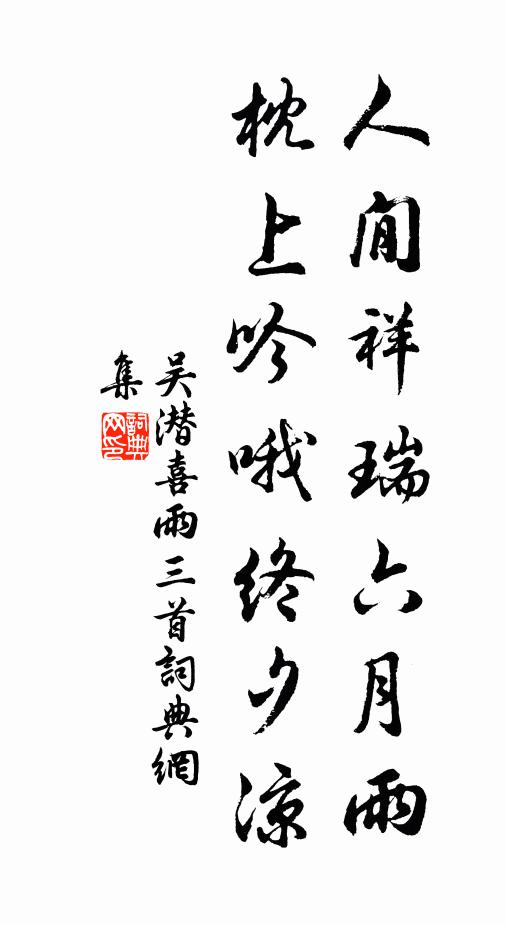 人間祥瑞六月雨
枕上吟哦終夕涼
吴潛喜雨三首詞典網
集
詞典
网印